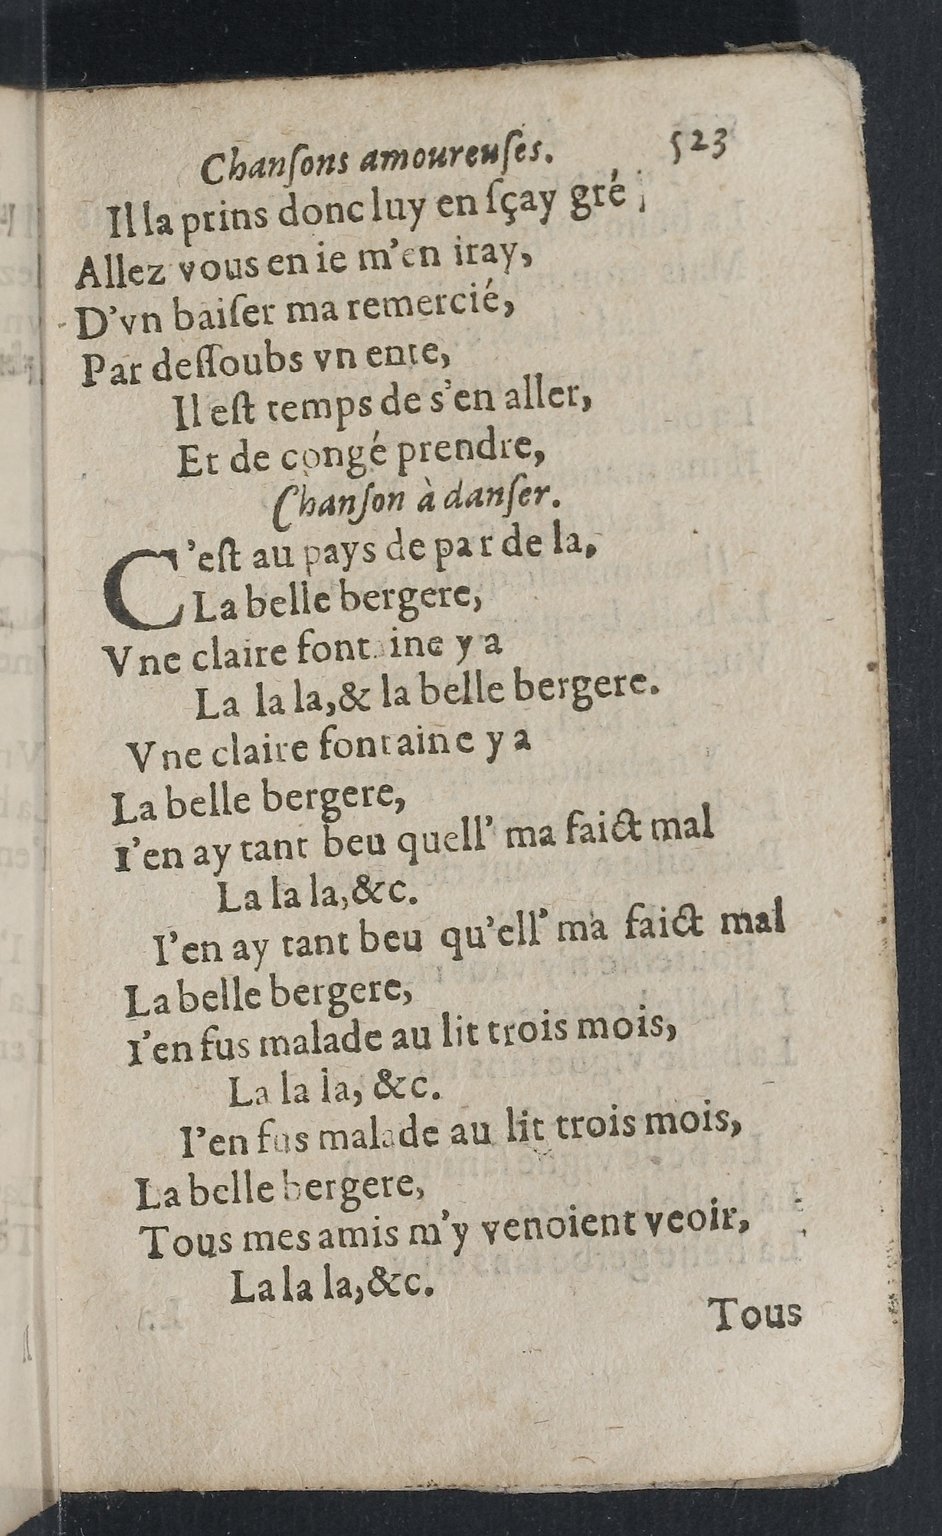 Chanſons amoureuſes. 523
Il la prins donc luy en ſçay gré ;
Allez vous en ie m'en iray,
D'vn baiſer ma remercié,
Par deſſoubs vn ente,
Il eſt temps de s'en aller,
Et de congé prendre,
Chanſon à danſer.
C'eſt au pays de par de la,
La belle bergere,
Vne claire fontaine y a
La la la,& la belle bergere.
Vne claire fontaine y a
La belle bergere,
I'en ay tant beu quell' ma faict mal
La la la,&c.
I'en ay tant beu qu'ell' ma faict mal
La belle bergere,
I'en fus malade au lit trois mois,
La la la, &c.
I'en fus malade au lit trois mois,
La belle bergere,
Tous mes amis m'y venoient veoir,
La la la,&c.
Tous